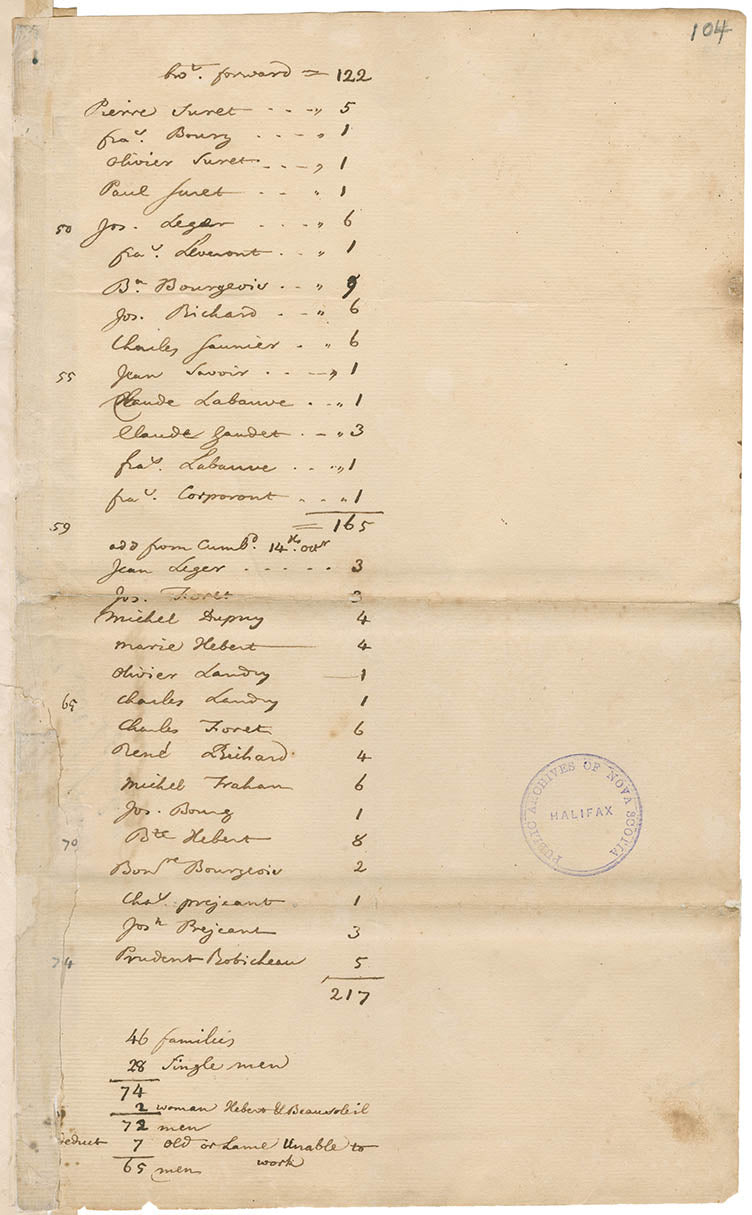 104
bro.t forward = 122
Pierre Suret - - - " 5
fra.s Bourg - - - " 1
Olivier Suret - - - " 1
Paul Suret - - " 1
50 Jos. Leger - - - " 6
fra.s Levenont - - " 1
B.n Bourgeois - - " 9
Jos. Richard - - " 6
Charles Saunier - " 6
55 Jean Savoir - - - " 1
Claude Labauve - - " 1
Claude Gaudet - - " 3
fra.s Labauve - - " 1
fra.s Corporont - - " 1
59 = 165
add from Cumb.d 14th. Octr
Jean Leger - - - - - 3
Jos. Foret 3
Michel Dupuy 4
Marie Hebert 4
Olivier Landry 1
65 Charles Landry 1
Charles Foret 6
René Richard 4
Michel Trahan 6
Jos. Bourg 1
70 Bte Hebert 8
Bonre Bourgeois 2
Chas. prejeant 1
Josh Prejeant 3
74 Prudent Robicheau 5
217
46 families
28 Single men
74
2 woman Hebert & Beausoleil
72 men
deduct 7 Old or Lame Unable to
work
65 men
PUBLIC ARCHIVES OF NOVA SCOTIA
HALIFAX